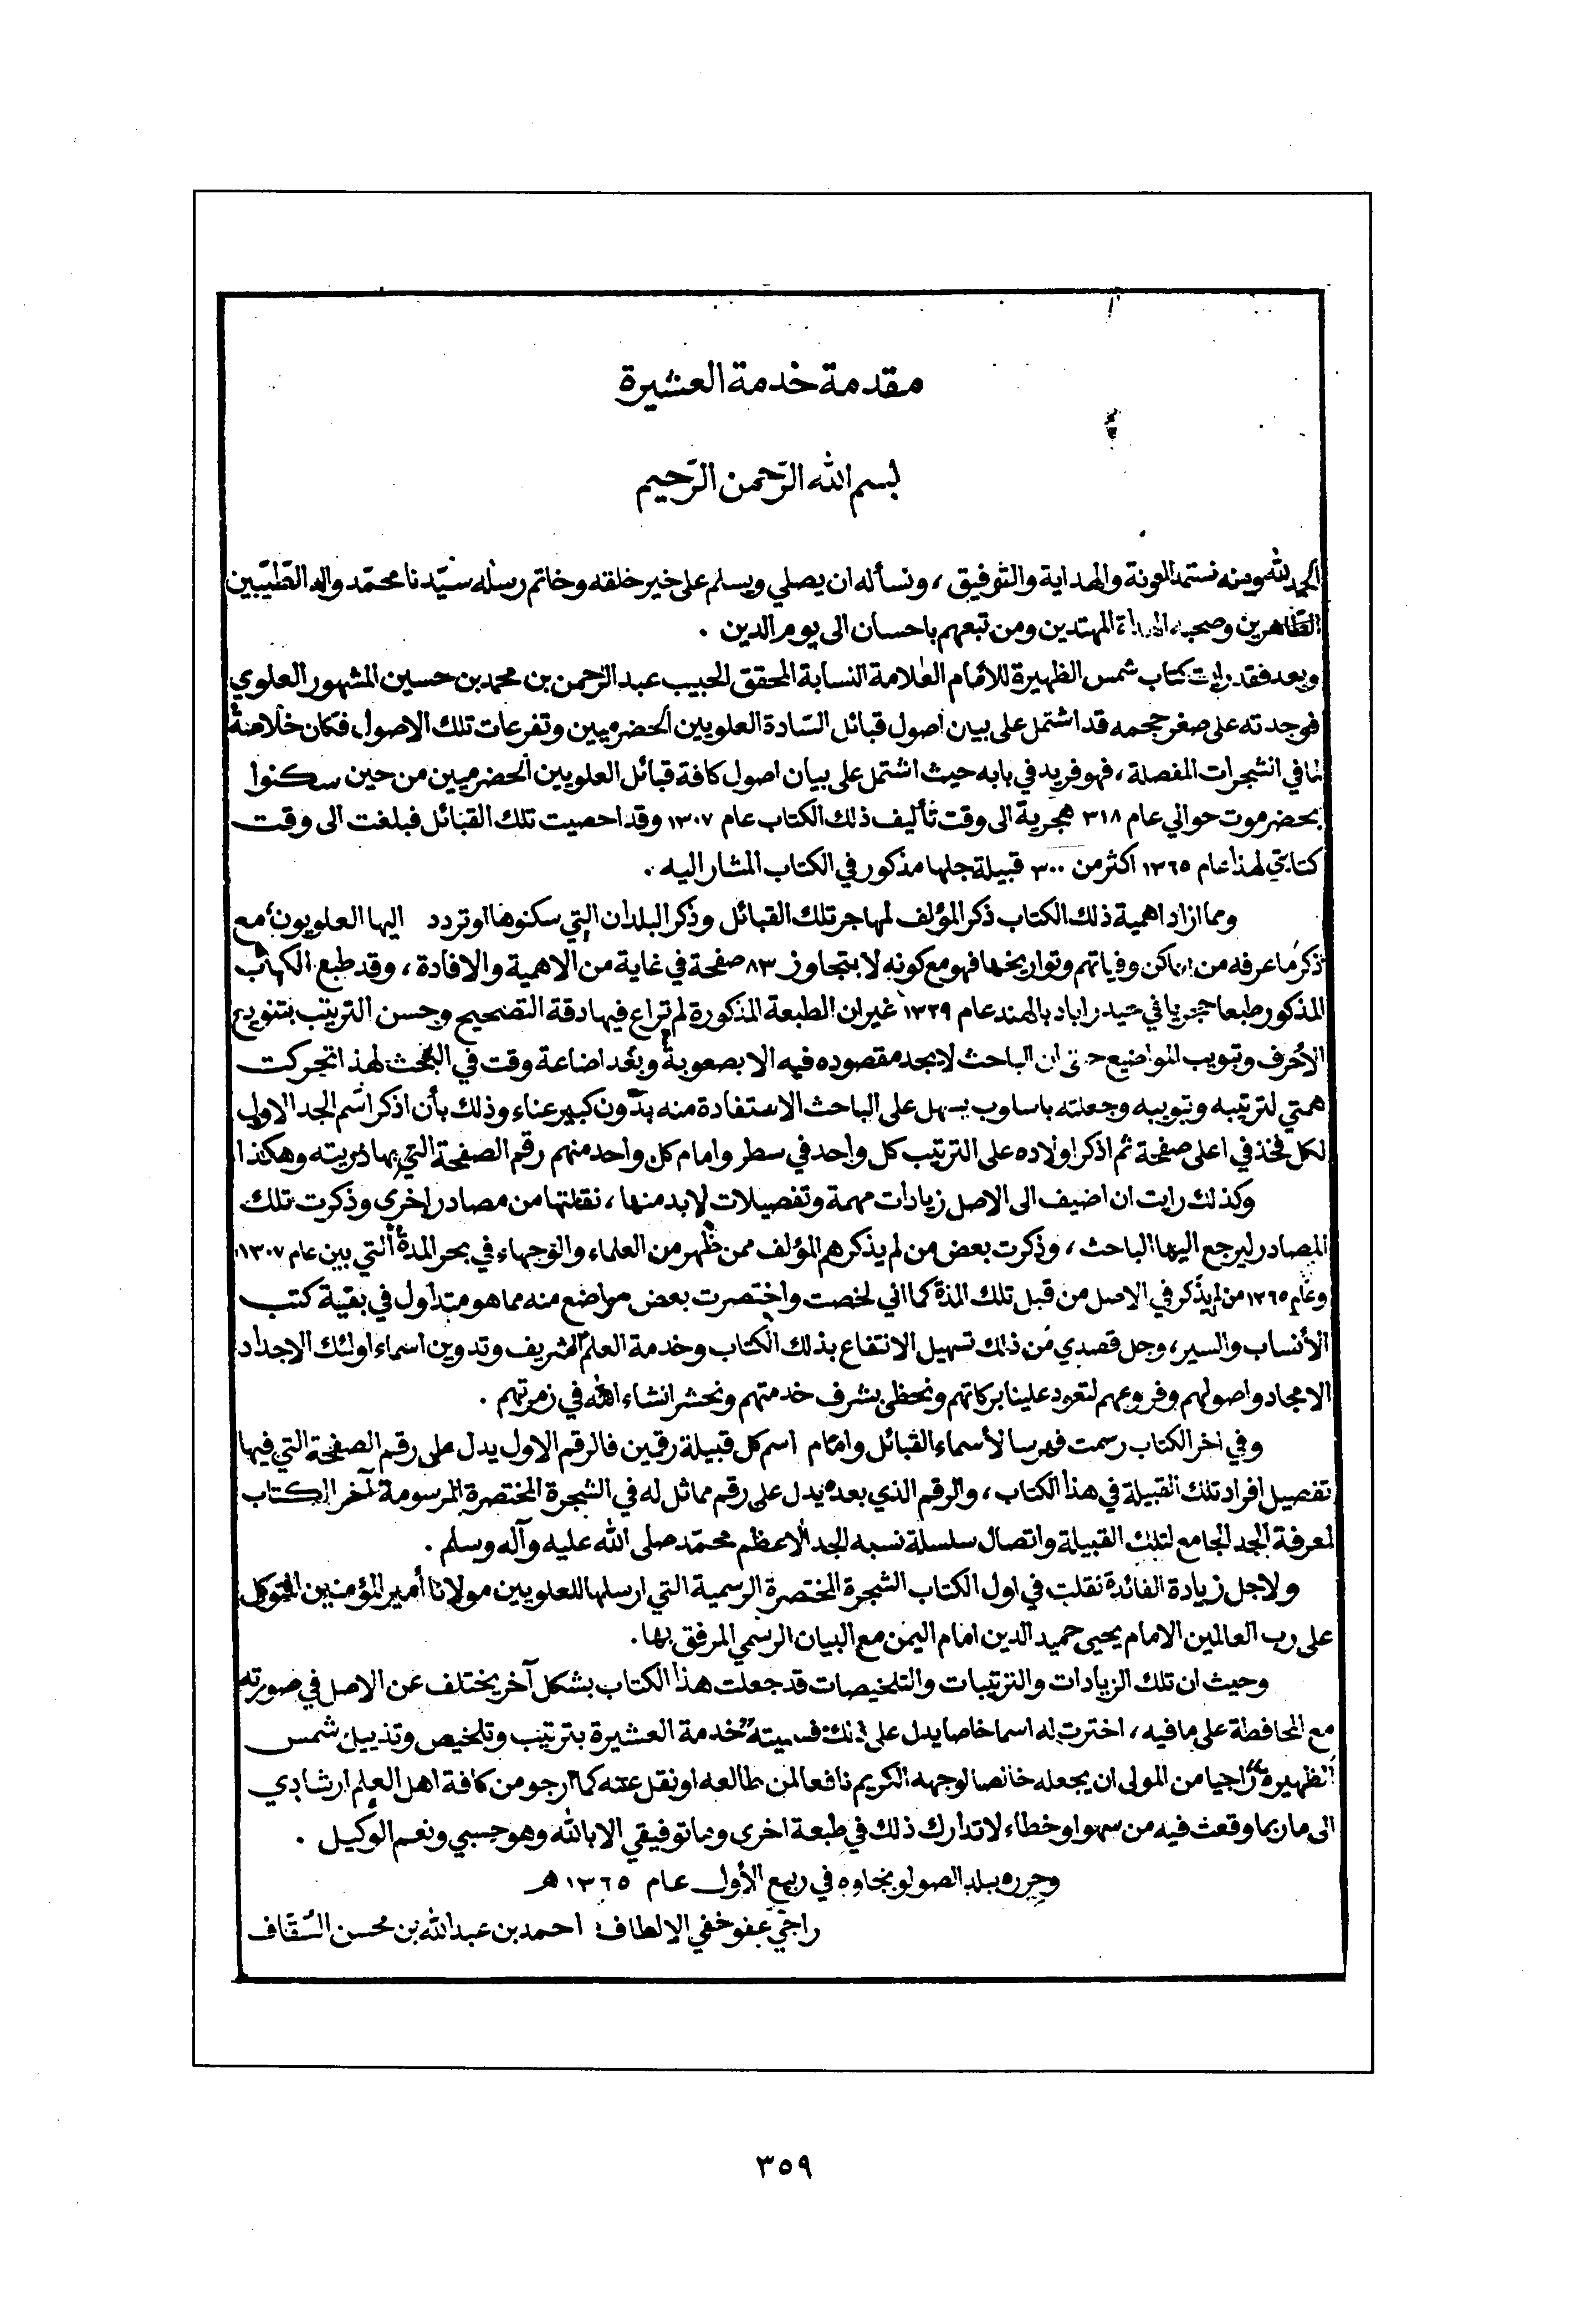 مقدمة خدمة العشيرة
بسم الله الرّحمن الرّحيم
الحمد لله ومنه نستمد العونة والهداية والتوفيق ، ونسأله ان يصلي ويسلم على خير خلقه وخاتم رسله سيّدنا محمّد واله الطّيّبين
الطّاهرين وصحبه الهداة المهتدين ومن تبعهم باحسان الى يوم الدين .
وبعد فقد رايت كتاب شمس الظهيرة للأمام العلامة النسابة المحقق الحبيب عبد الرّحمن بن محمد بن حسين المشهور العلوي
فوجدته على صغر حجمه قد اشتمل على بيان اصول قبائل السّادة العلويين الحضرميين وتفرعات تلك الاصول فكان خلاصةً
لما في الشجرات المفصلة ، فهو فريد في بابه حيث اشتمل على بيان اصول كافة قبائل العلويين الحضرميين من حين سكنوا
بحضرموت حوالي عام ٣١٨ هجرية الى وقت تأليف ذلك الكتاب عام ١٣٠٧ وقد احصيت تلك القبائل فبلغت الى وقت
كتابتي لهذا عام ١٣٦٥ اكثر من ٣٠٠ قبيلة جلها مذكور في الكتاب المشار اليه .
ومما ازاد اهمية ذلك الكتاب ذكر المؤلف لمهاجر تلك القبائل وذكر البلدان التي سكنوها او تردد اليها العلويون مع
ذكر ما عرفه من اماكن وفياتهم وتواريخها فهو مع كونه لا يتجاوز ٨٣ صفحة في غاية من الاهمية والافادة ، وقد طبع الكتاب
المذكور طبعا حجريا في حيدراباد بالهند عام ١٣٢٩ غير ان الطبعة المذكورة لم تراع فيها دقة التصحيح وحسن الترتيب بتنويع
الاحرف وتبويب المواضيع حتى ان الباحث لا يجد مقصوده فيه الا بصعوبة وبعد اضاعة وقت في البحث لهذا تحركت
همتي لترتيبه وتبويبه وجعلته باسلوب يسهل على الباحث الاستفادة منه بدون كبير عناء وذلك بأن اذكر اسم الجد الاول
لكل فخذ في اعلى صفحة ثم اذكر اولاده على الترتيب كل واحد في سطر وامام كل واحد منهم رقم الصفحة التي بها ذريته وهكذا
وكذلك رايت ان اضيف الى الاصل زيادات مهمة وتفصيلات لابد منها ، نقلتها من مصادر اخرى وذكرت تلك
المصادر ليرجع اليها الباحث ، وذكرت بعض من لم يذكرهم المؤلف ممن ظهر من العلماء والوجهاء في بحر المدة التي بين عام ١٣٠٧
وعام ١٣٦٥ من لم يذكر في الاصل من قبل تلك المدة كما اني لخصت واختصرت بعض مواضع منه مما هو متداول في بقية كتب
الأنساب والسير ، وجل قصدي من ذلك تسهيل الانتفاع بذلك الكتاب وخدمة العلم الشريف وتدوين اسماء اولئك الاجداد
الامجاد واصولهم وفروعهم لتعود علينا بركاتهم ونحظى بشرف خدمتهم ونحشر انشاء الله في زمرتهم .
وفي اخر الكتاب رسمت فهرسا لأسماء القبائل وامام اسم كل قبيلة رقمين فالرقم الاول يدل على رقم الصفحة التي فيها
تفصيل افراد تلك القبيلة في هذا الكتاب ، والرقم الذي بعده يدل على رقم مماثل له في الشجرة المختصرة المرسومة لآخر الكتاب
لمعرفة الجد الجامع لتلك القبيلة واتصال سلسلة نسبه الجد الاعظم محمّد صلى الله عليه وآله وسلم .
ولاجل زيادة الفائدة نقلت في اول الكتاب الشجرة المختصرة الرسمية التي ارسلها للعلويين مولانا أمير المؤمنين المتوكل
على رب العالمين الامام يحيى حميد الدين امام اليمن مع البيان الرسمي المرفق بها .
وحيث ان تلك الزيادات والترتيبات والتلخيصات قد جعلت هذا الكتاب بشكل آخر يختلف عن الاصل في صورته
مع المحافظة على ما فيه ، اخترت له اسما خاصا يدل على ذلك فسميته "خدمة العشيرة بترتيب وتلخيص وتذييل شمس
الظهيرة" راجيا من المولى ان يجعله خالصا لوجهه الكريم نافعا لمن طالعه او نقل عنه كما ارجو من كافة اهل العلم ارشادي
الى ما ربما وقعت فيه من سهو او خطاء لاتدارك ذلك في طبعة اخرى وما توفيقي الا بالله وهو حسبي ونعم الوكيل .
وحرره ببلد الصولو بجاوه في ربيع الأول عام ١٣٦٥ هـ
راجي عفو خفي الالطاف : احمد بن عبد الله بن محسن السّقّاف
٣٥٩